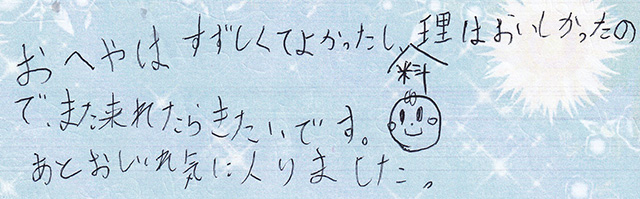 おへやは すずしくてよかったし、料理はおいしかったの
で、また来れたらきたいです。
あとおしいれ気に入りました。